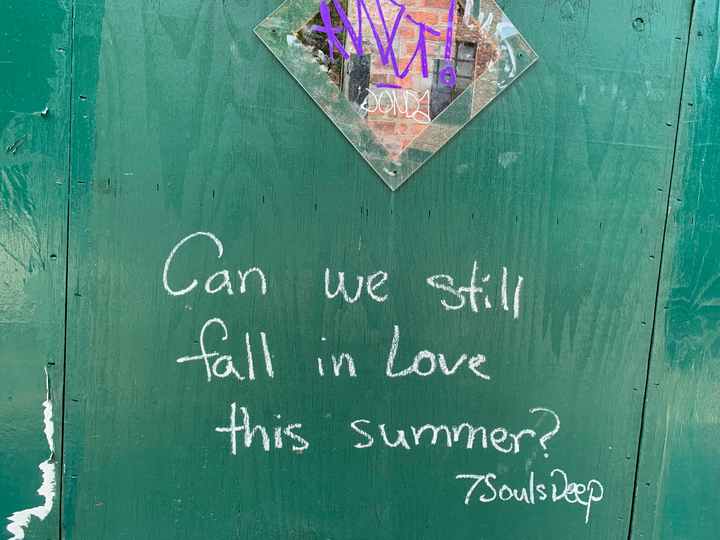 Can we still
fall in Love
this summer?
7SoulsDeep